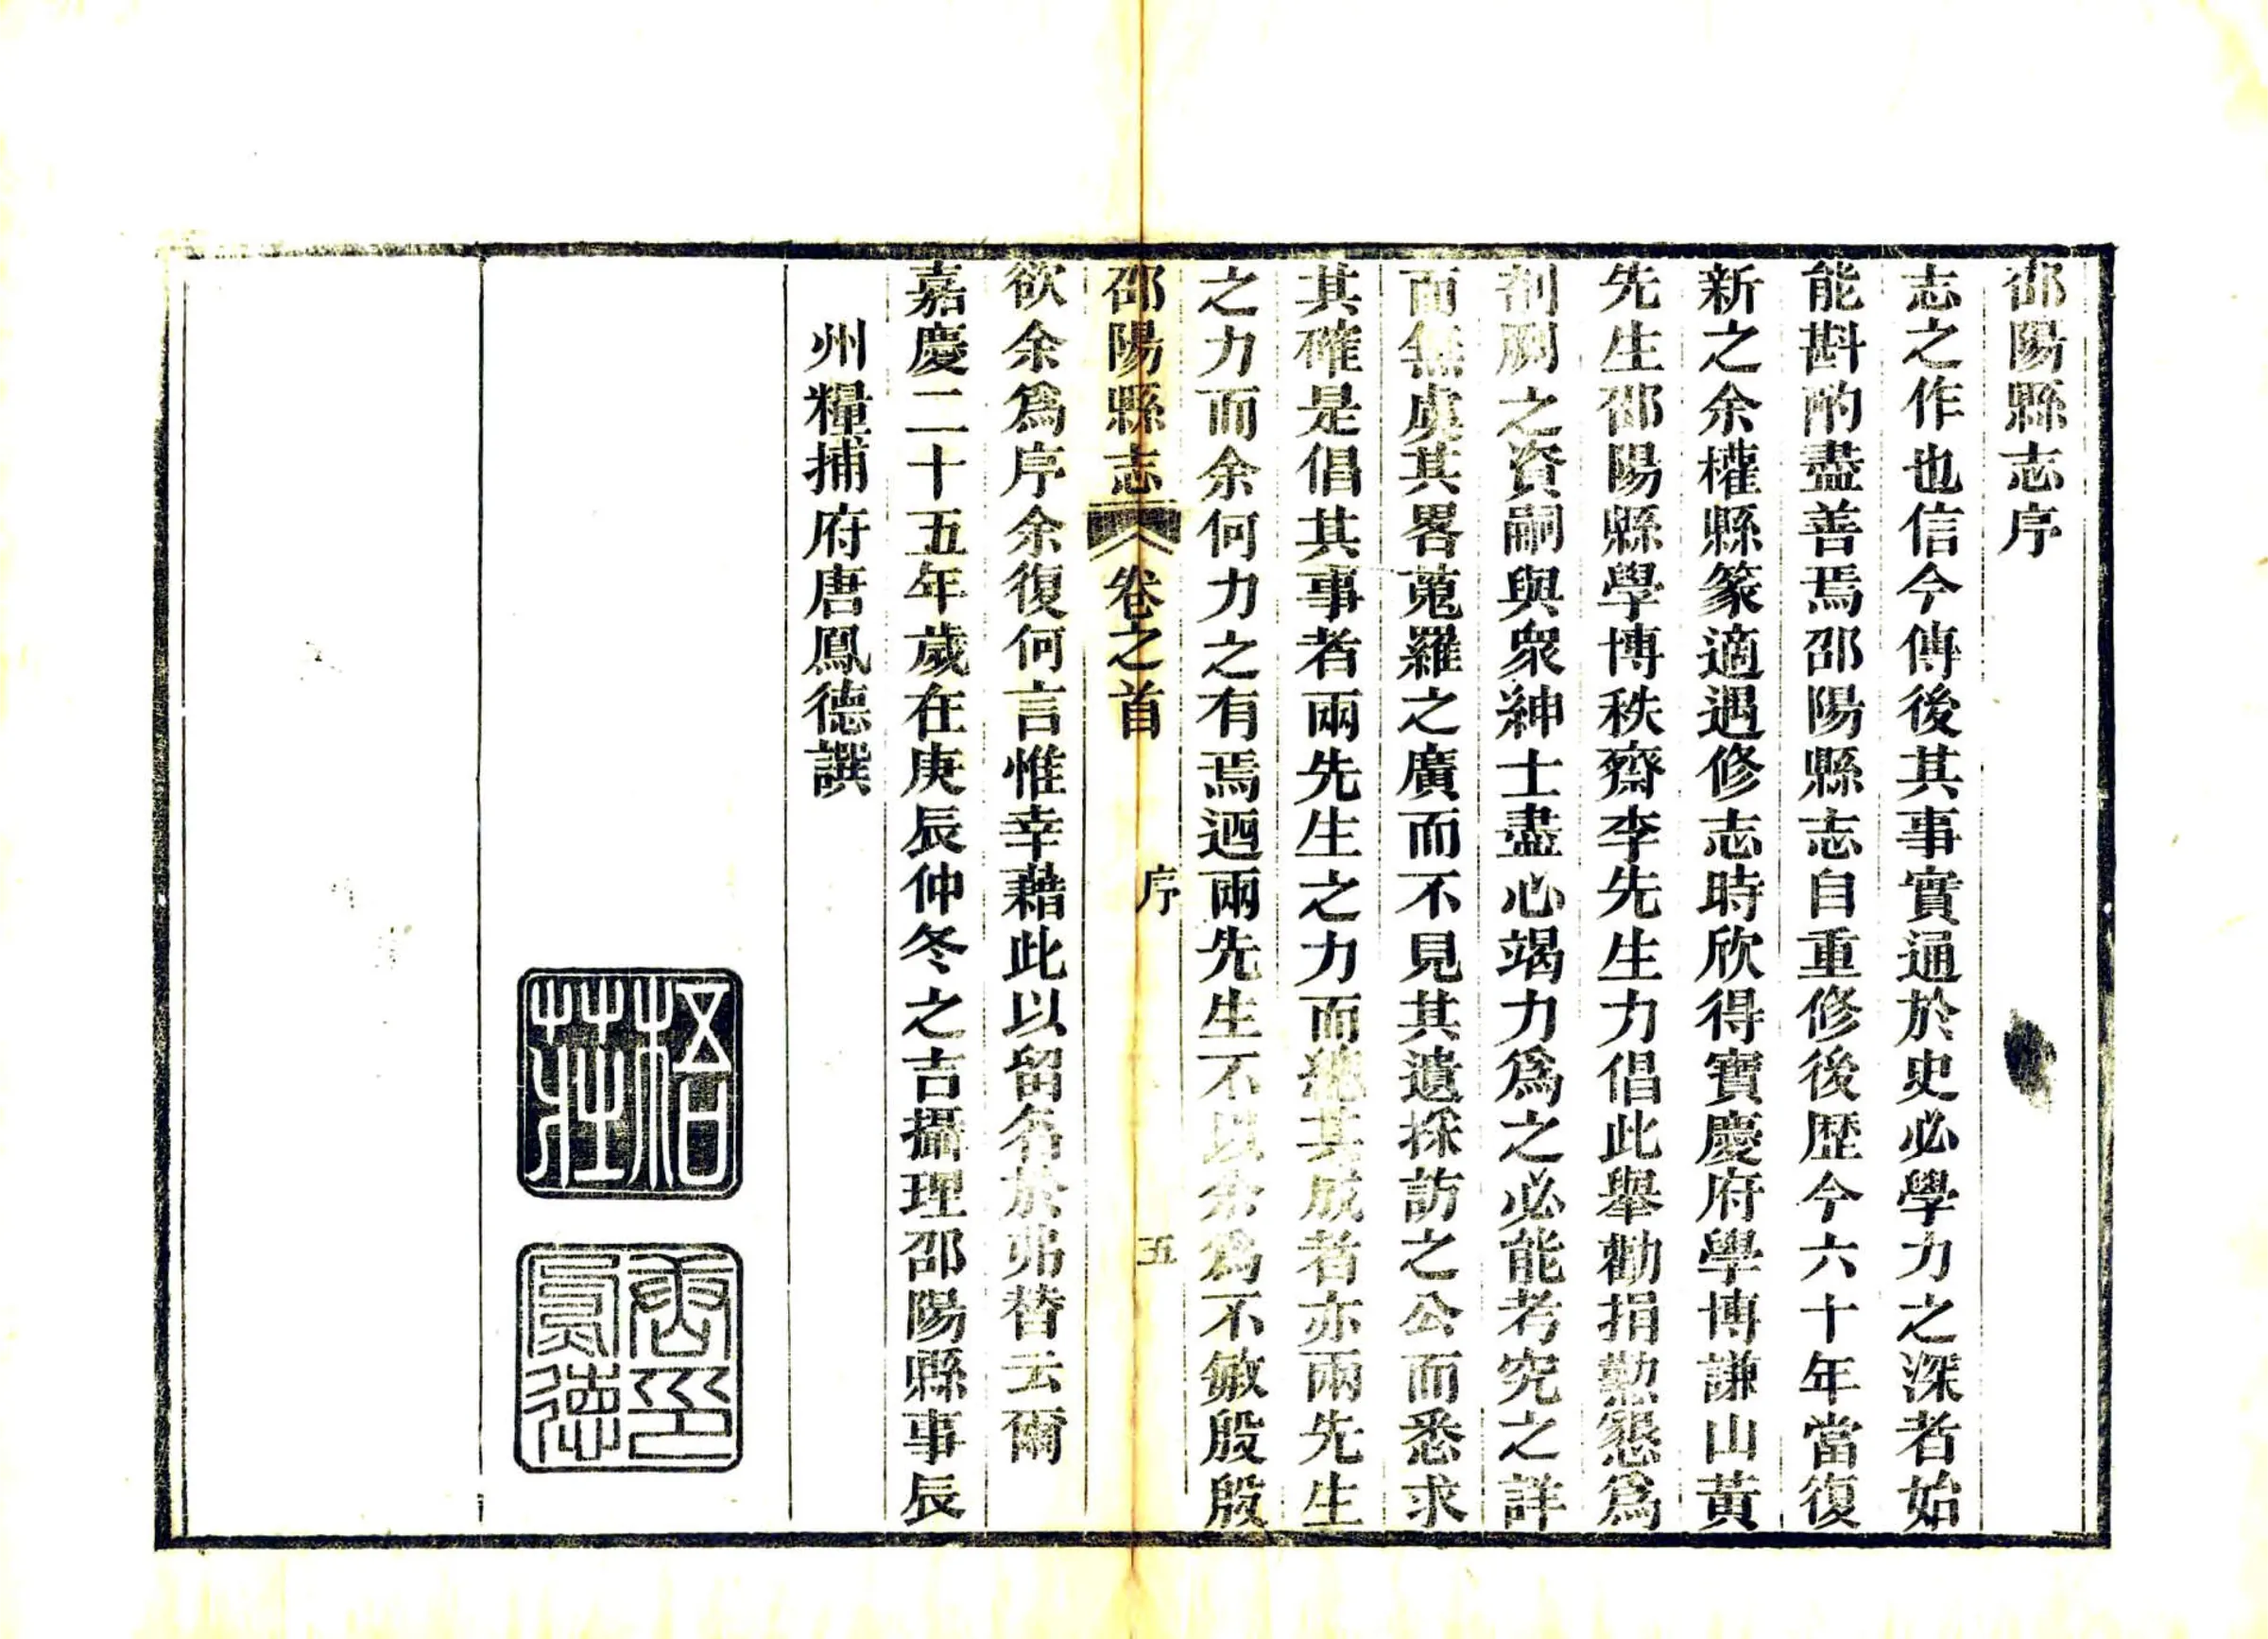 邵陽縣志序
志之作也信今傳後其事實通於史必學力之深者始
能斟酌盡善焉邵陽縣志自重修後歷今六十年當復
新之余權縣篆適遇修志時欣得寶慶府學博謙山黃
先生邵陽縣學博秩齋李先生力倡此舉勸捐懃懇爲
剞劂之資嗣與衆紳士盡心竭力爲之必能考究之詳
而無虞其畧蒐羅之廣而不見其遺採訪之公而悉求
其確是倡其事者兩先生之力而總其成者亦兩先生
之力而余何力之有焉廼兩先生不以余爲不敏殷殷
邵陽縣志 卷之首 序 五
欲余爲序余復何言惟幸藉此以留名於弗替云爾
嘉慶二十五年歲在庚辰仲冬之吉攝理邵陽縣事辰
州糧捕府唐鳳德譔
梧莊
唐印鳳德